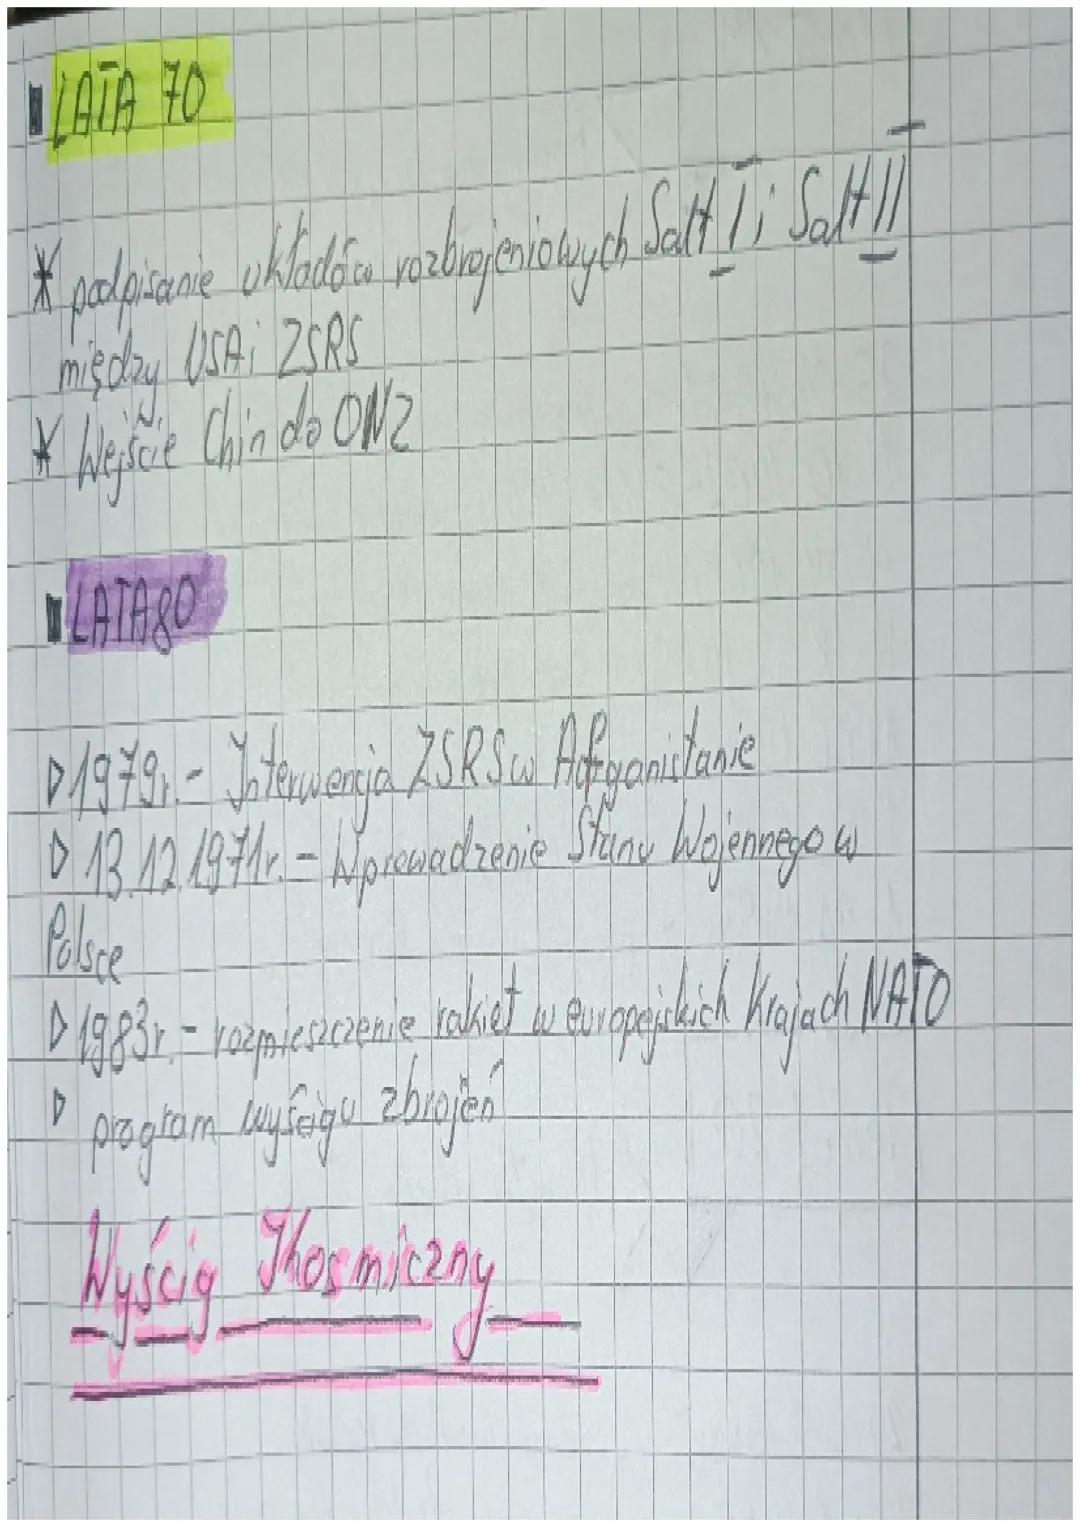 LATA 70
* podpisanie układów rozbrojeniowych Salt I i Salt II
między USA i ZSRS
* Wejście Chin do ONZ
LATA 80
▷ 1979r. - Interwencja ZSRS w Afganistanie
▷ 13.12.1971r. - Wprowadzenie Stanu Wojennego w
Polsce
▷ 1983r. - rozmieszczenie rakiet w europejskich Krajach NATO
▷ program wyścigu zbrojeń
Wyścig Kosmiczny